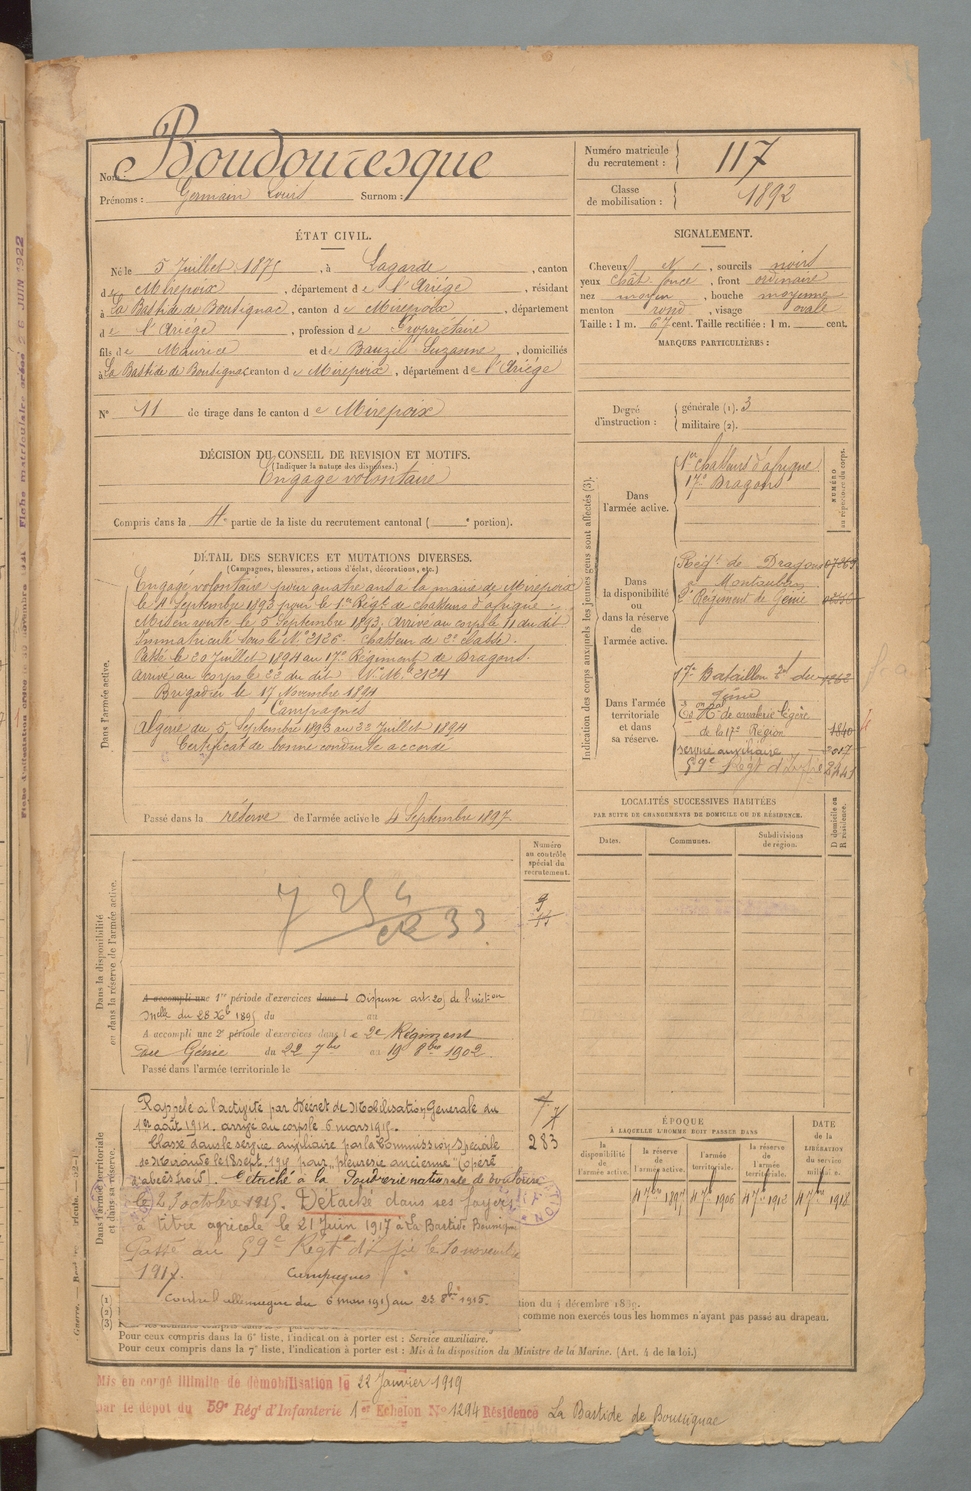 Nom : Boudouresque
Prénoms : Germain Louis Surnom :
Numéro matricule du recrutement : 117
Classe de mobilisation : 1892
ÉTAT CIVIL.
Né le 5 Juillet 1875, à Lagarde, canton
de Mirepoix, département de l'Ariège, résidant
à La Bastide de Bousignac, canton de Mirepoix, département
de l'Ariége, profession de Propriétaire
fils de Maurice et de Bauzil Suzanne, domiciliés
à La Bastide de Bousignac canton de Mirepoix, département de l'Ariége
N° 11 de tirage dans le canton de Mirepoix
SIGNALEMENT.
Cheveux N, sourcils noirs
yeux chât. foncé, front ordinaire
nez moyen, bouche moyenne
menton rond, visage ovale
Taille : 1 m. 67 cent. Taille rectifiée : 1 m. cent.
MARQUES PARTICULIÈRES :
Degré d'instruction : générale (1). 3
militaire (2).
DÉCISION DU CONSEIL DE REVISION ET MOTIFS.
(Indiquer la nature des dispenses.)
Engagé volontaire
Compris dans la 4e partie de la liste du recrutement cantonal ( e portion).
DÉTAIL DES SERVICES ET MUTATIONS DIVERSES.
(Campagnes, blessures, actions d'éclat, décorations, etc.)
Dans l'armée active.
Engagé volontaire pour quatre ans à la mairie de Mirepoix
le 4 Septembre 1893 pour le 1er Régt de chasseurs d'afrique
Mis en route le 5 Septembre 1893, arrivé au corps le 11 du dit
Immatriculé sous le N° 2126. Chasseur de 2e classe.
Passé le 20 Juillet 1894 au 17e Régiment de Dragons.
arrivé au corps le 23 du dit N° Mle 2124
Brigadier le 17 Novembre 1894
Campagnes
Algérie du 5 Septembre 1893 au 22 Juillet 1894
Certificat de bonne conduite accordé
Passé dans la réserve de l'armée active le 4 Septembre 1897
Indication des corps auxquels les jeunes gens sont affectés (3).
NUMÉRO au répertoire du corps.
Dans l'armée active.
1er chasseurs d'afrique
17e Dragons
Dans la disponibilité ou dans la réserve de l'armée active.
Régt. de Dragons
à Montauban
2e Régiment de Génie
Dans l'armée territoriale et dans sa réserve.
17e Bataillon du
Génie
de cavalerie légère
de la 17e Région 1840
service auxiliaire
59e Régt d'Infie
LOCALITÉS SUCCESSIVES HABITÉES
PAR SUITE DE CHANGEMENTS DE DOMICILE OU DE RÉSIDENCE.
Dates. Communes. Subdivisions de région. D domicile ou R résidence.
Numéro au contrôle spécial du recrutement.
Dans la disponibilité ou dans la réserve de l'armée active.
9
A accompli une 1re période d'exercices dans l Dispensé art. 20 de l'inston
Mlle du 28 Xb 1895 du au
A accompli une 2e période d'exercices dans l e 2e Régiment
du Génie du 22 7bre au 19 8bre 1902.
Passé dans l'armée territoriale le
Dans l'armée territoriale et dans sa réserve.
Rappelé à l'activité par Décret de Mobilisation Générale du
1er août 1914. arrivé au corps le 6 mars 1915.
Classé dans le service auxiliaire par la Commission Spéciale
de Mirande le 18 sept. 1915 pour "pleurésie ancienne" (opéré
d'abcès froid). Détaché à la Poudrerie nationale de Toulouse
le 23 octobre 1915. Détaché dans ses foyers
à titre agricole le 21 Juin 1917 à La Bastide Bousignac
Passé au 59e Régt d'Infie le 10 novembre
1917.
Campagnes
Contre l'Allemagne du 6 mars 1915 au 23 8bre 1915.
283
ÉPOQUE
À LAQUELLE L'HOMME DOIT PASSER DANS
la disponibilité de l'armée active. la réserve de l'armée active. l'armée territoriale. la réserve de l'armée territoriale.
DATE de la LIBÉRATION du service militaire.
4 7bre 1897 4 7bre 1906 4 7bre 1912 4 7bre 1918
comme non exercés tous les hommes n'ayant pas passé au drapeau.
Pour ceux compris dans la 6e liste, l'indication à porter est : Service auxiliaire.
Pour ceux compris dans la 7e liste, l'indication à porter est : Mis à la disposition du Ministre de la Marine. (Art. 4 de la loi.)
Mis en congé illimité de démobilisation le 22 Janvier 1919
par le dépôt du 59e Régt d'Infanterie 1er Echelon N° 1294 Résidence La Bastide de Boussignac